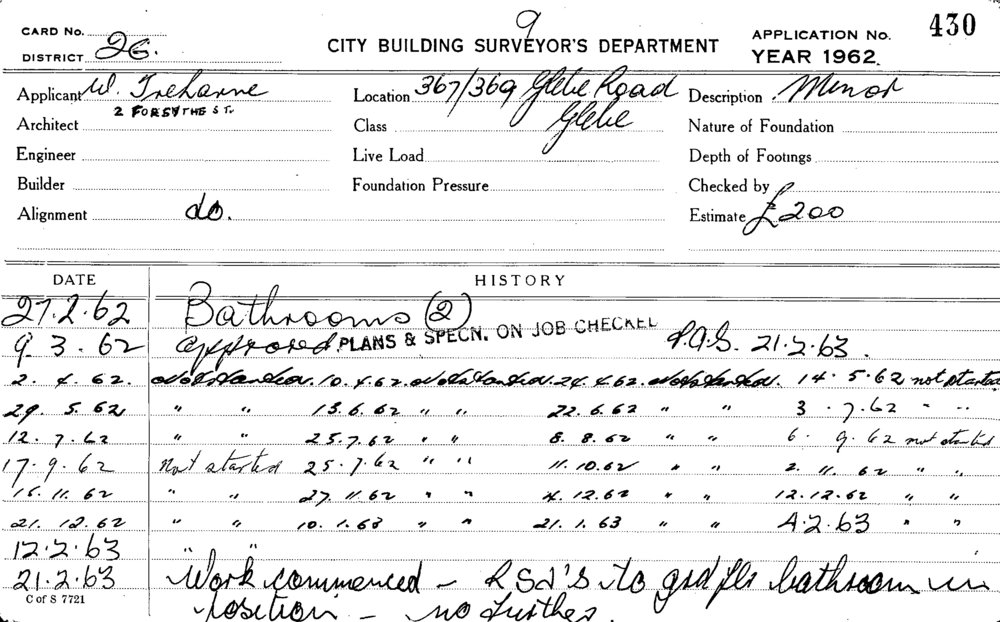 9
CARD No. CITY BUILDING SURVEYOR'S DEPARTMENT APPLICATION No. 430
DISTRICT 26 YEAR 1962
Applicant W. Treharne Location 367/369 Glebe Road Description Minor
2 FORSYTHE ST.
Architect Class Glebe Nature of Foundation
Engineer Live Load Depth of Footings
Builder Foundation Pressure Checked by
Alignment do. Estimate £200
DATE HISTORY
27.2.62 Bathrooms (2)
9.3.62 approved. PLANS & SPECN. ON JOB CHECKED 21.2.63.
2.4.62. Not Started. 10.4.62. Not Started. 24.4.62. Not Started. 14.5.62 not started
29.5.62 " " 13.6.62 " " 22.6.62 " " 3.7.62 " "
12.7.62 " " 25.7.62 " " 8.8.62 " " 6.9.62 not started
17.9.62 not started 25.7.62 " " 11.10.62 " " 2.11.62 " "
15.11.62 " " 27.11.62 " " 4.12.62 " " 12.12.62 " "
21.12.62 " " 10.1.63 " " 21.1.63 " " 4.2.63 " "
12.2.63 " "
21.2.63 Work commenced - RSJ'S to grd flr bathroom in
C of S 7721
position - no further.